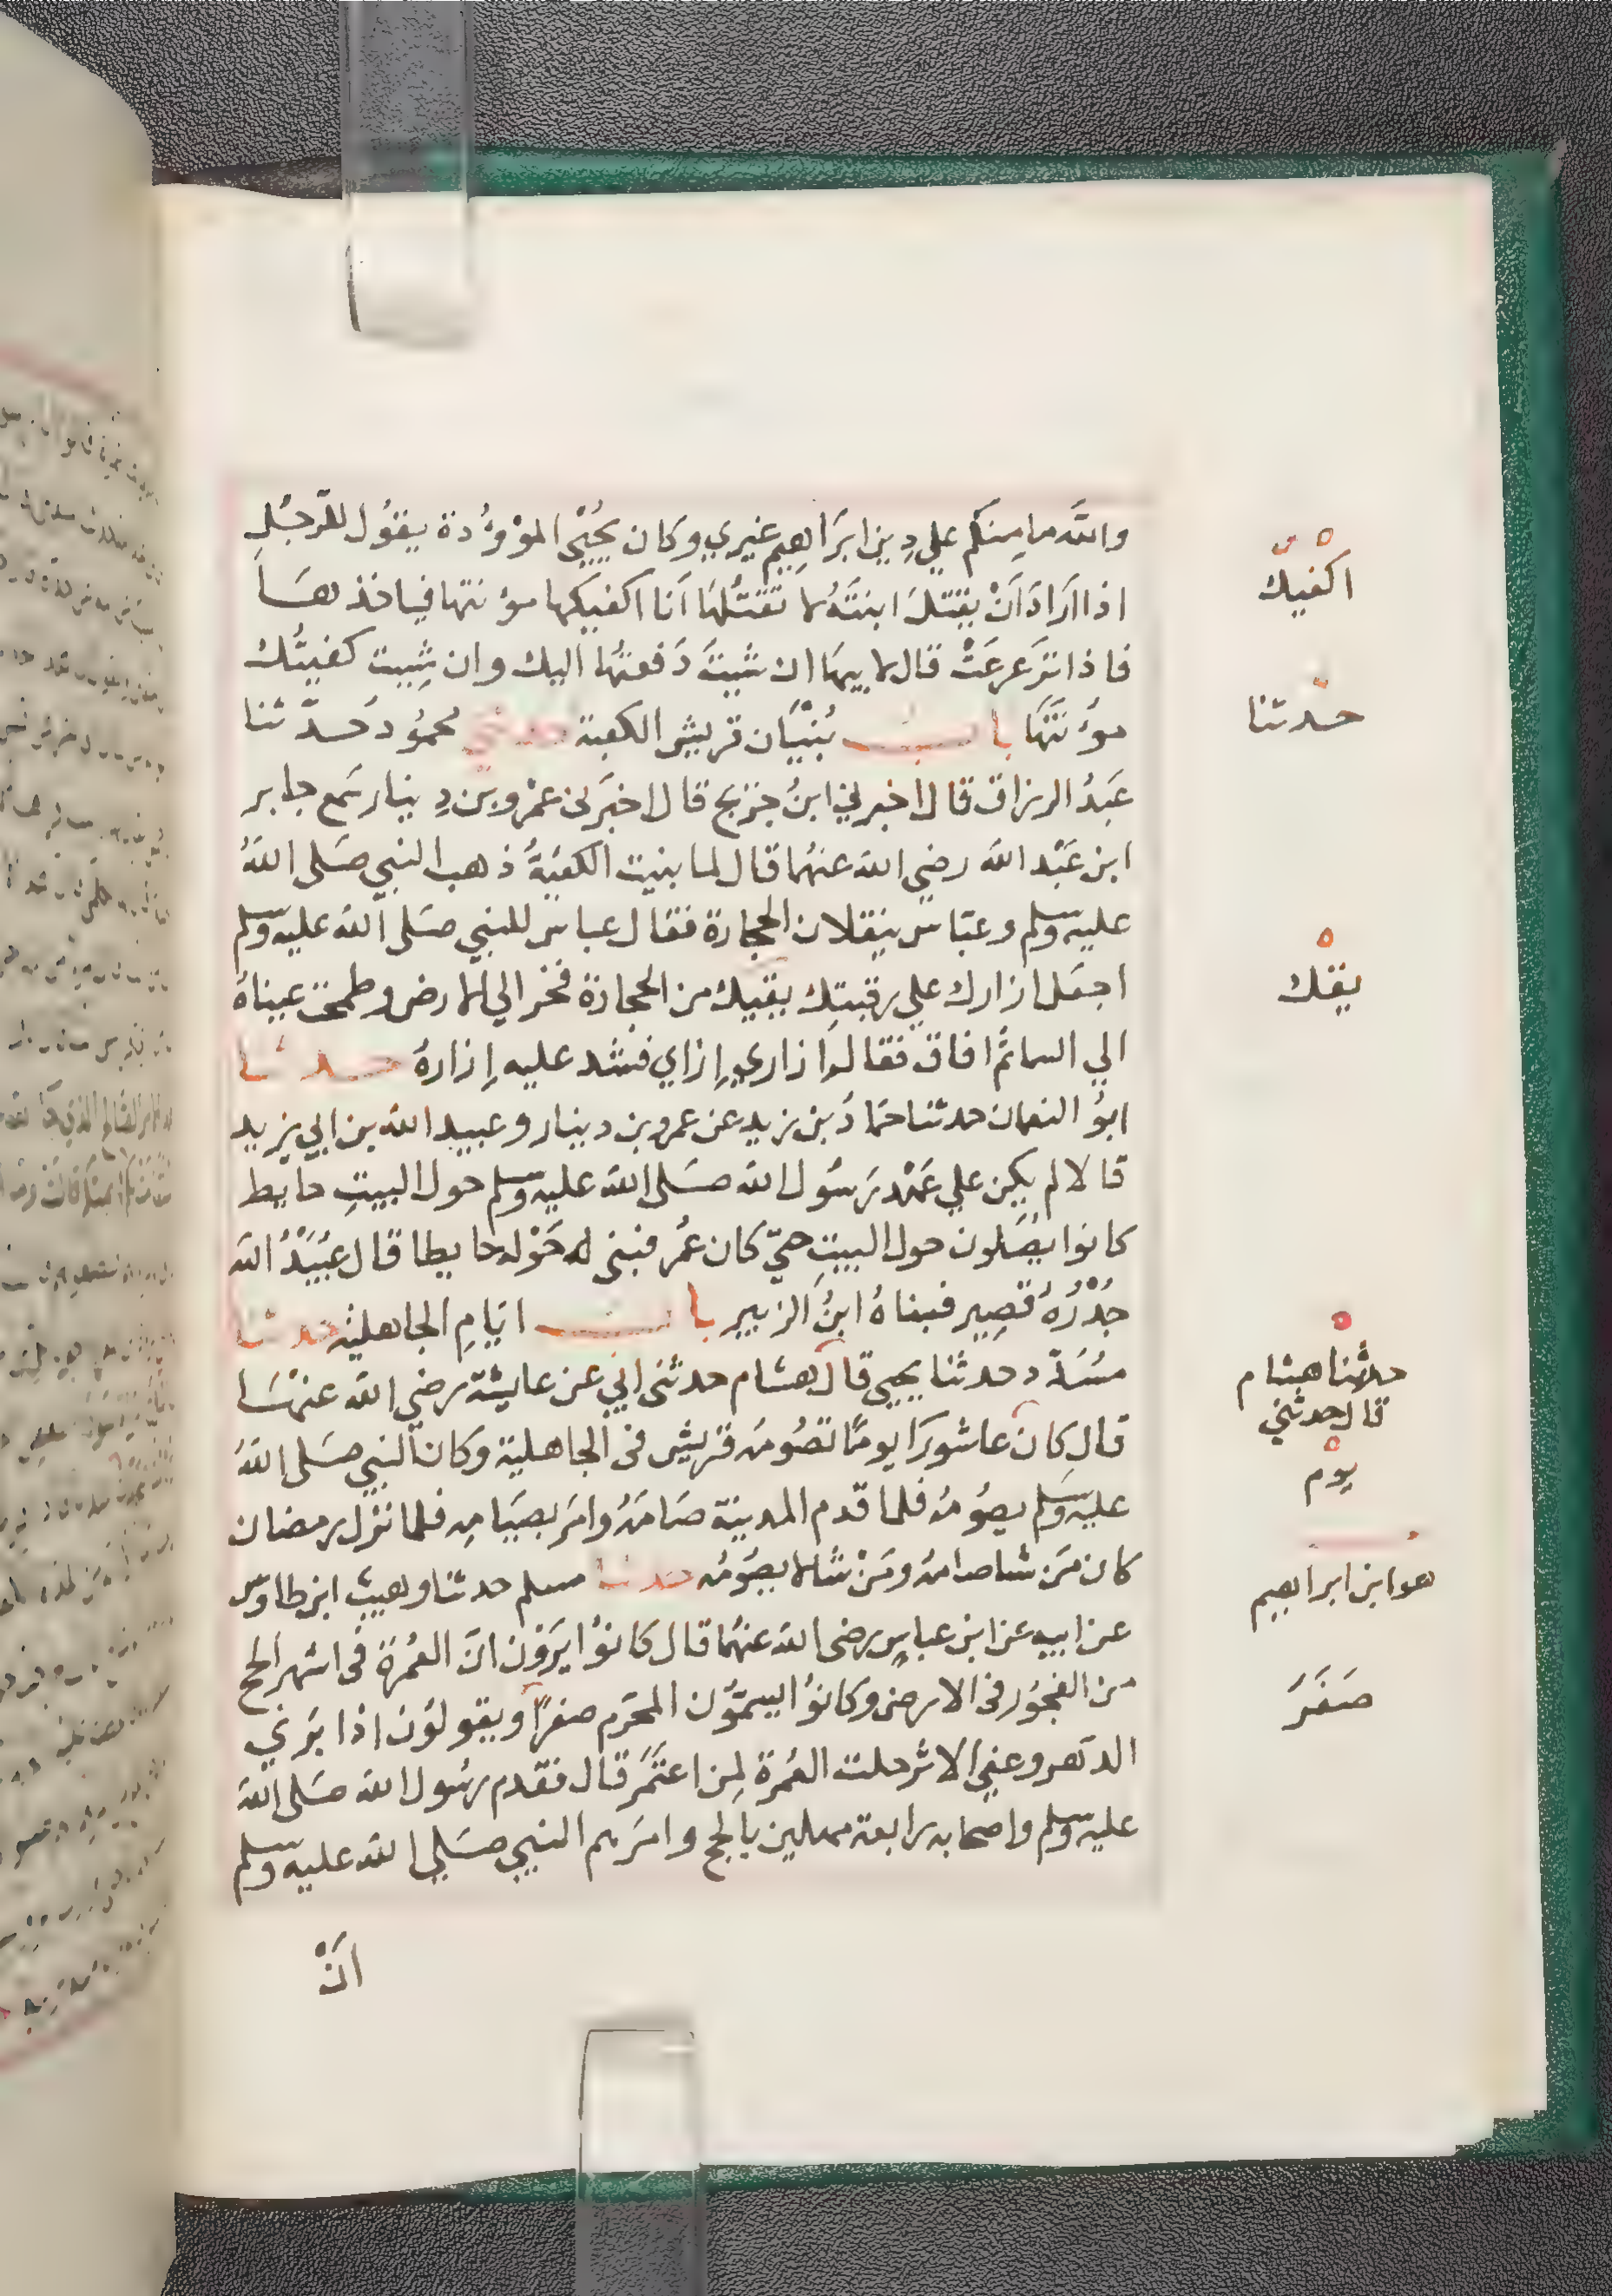 والله ما مِنكم علي دِين ابرَاهِيم غيري وكان يُحْيِي الموْؤُدة يقوُل للرَّجُلِ
اذا ارَادَ اَنْ يقتلَ ابنتَهُ لا تقتُلهَا اَنا اكفيكها مؤنتها فياخذهَا
فاذا تَرَعرَعَتْ قال لابيهَا ان شيتَ دَفعتهَا اليك وان شِيت كفيتُك
مؤنَتَهَا باب بُنْيَان قريش الكعبة حدثني محموُد حَدَّثنا
عَبدُ الرزاق قال اخبرني ابنُ جريج قال اخبَرني عمْرو بن دِينار سَمع جابر
ابن عَبْد الله رضي الله عنهُما قال لما بنيت الكعبَةُ ذهب النبي صَلى اللهُ
عليه وسلم وعبّاس ينقلان الحجارة فقال عباس للنبي صَلى الله عليه وسلم
اجعَل ازارك علي رقبتِك يقيك من الحجارة فخر الي الارض وطمحت عيناهُ
الي السما ثم افاق فقال ازاري اِزاري فشد عليه اِزارهُ حدثنا
ابوُ النعمان حدثنا حمّادُ بن زيد عن عمرو بن دينار وعبيد الله بن ابي يزيد
قالا لم يكن علي عَهْد رَسُول الله صَلى الله عليه وسلم حول البيتِ حايط
كانوا يصَلون حول البيتِ حتيّ كان عُمر فبنى له حَوْله حايطا قال عبَيْدُ الله
جُدْرُهُ قصِير فبناهُ ابنُ الزبير باب ايَامِ الجاهلية حدثنا
مسَدَّد حدثنا يحيي قال هشام حدثنى ابي عن عايشة رضي الله عنهَا
قال كان عاشورَا يومًا تصُومُه قريش فى الجاهلية وكان النبي صَلى اللهُ
عليه وسلم يصُومُه فلما قدم المدينة صَامَهُ وامَر بصيَامِه فلما نزل رمضان
كان مَن شا صامهُ ومَنْ شا لا يصُومُه حدثنا مسلم حدثنا وهيب ابن طاوس
عن ابيه عن ابن عباسٍ رضى الله عنهُما قال كانوُا يرَوْن انّ العُمرة فى اشهر الحج
من الفجوُر فى الارض وكانوُا يسمّوُن المحَرم صفرًا ويقولوُن اذا بَرَي
الدبر وعفي الاثر حلت العُمرة لِمن اعتَمَر قال فقدم رسُول الله صَلى الله
عليه وسلم واصحابه رابعة مهلين بالحج وامَرهم النبي صَلي الله عليه وسلم
اَنْ
اكفيك
حدثنا
يقك
حدثنا هشام
قال حدثني
يوم
هو ابن ابراهيم
صَفَرَ